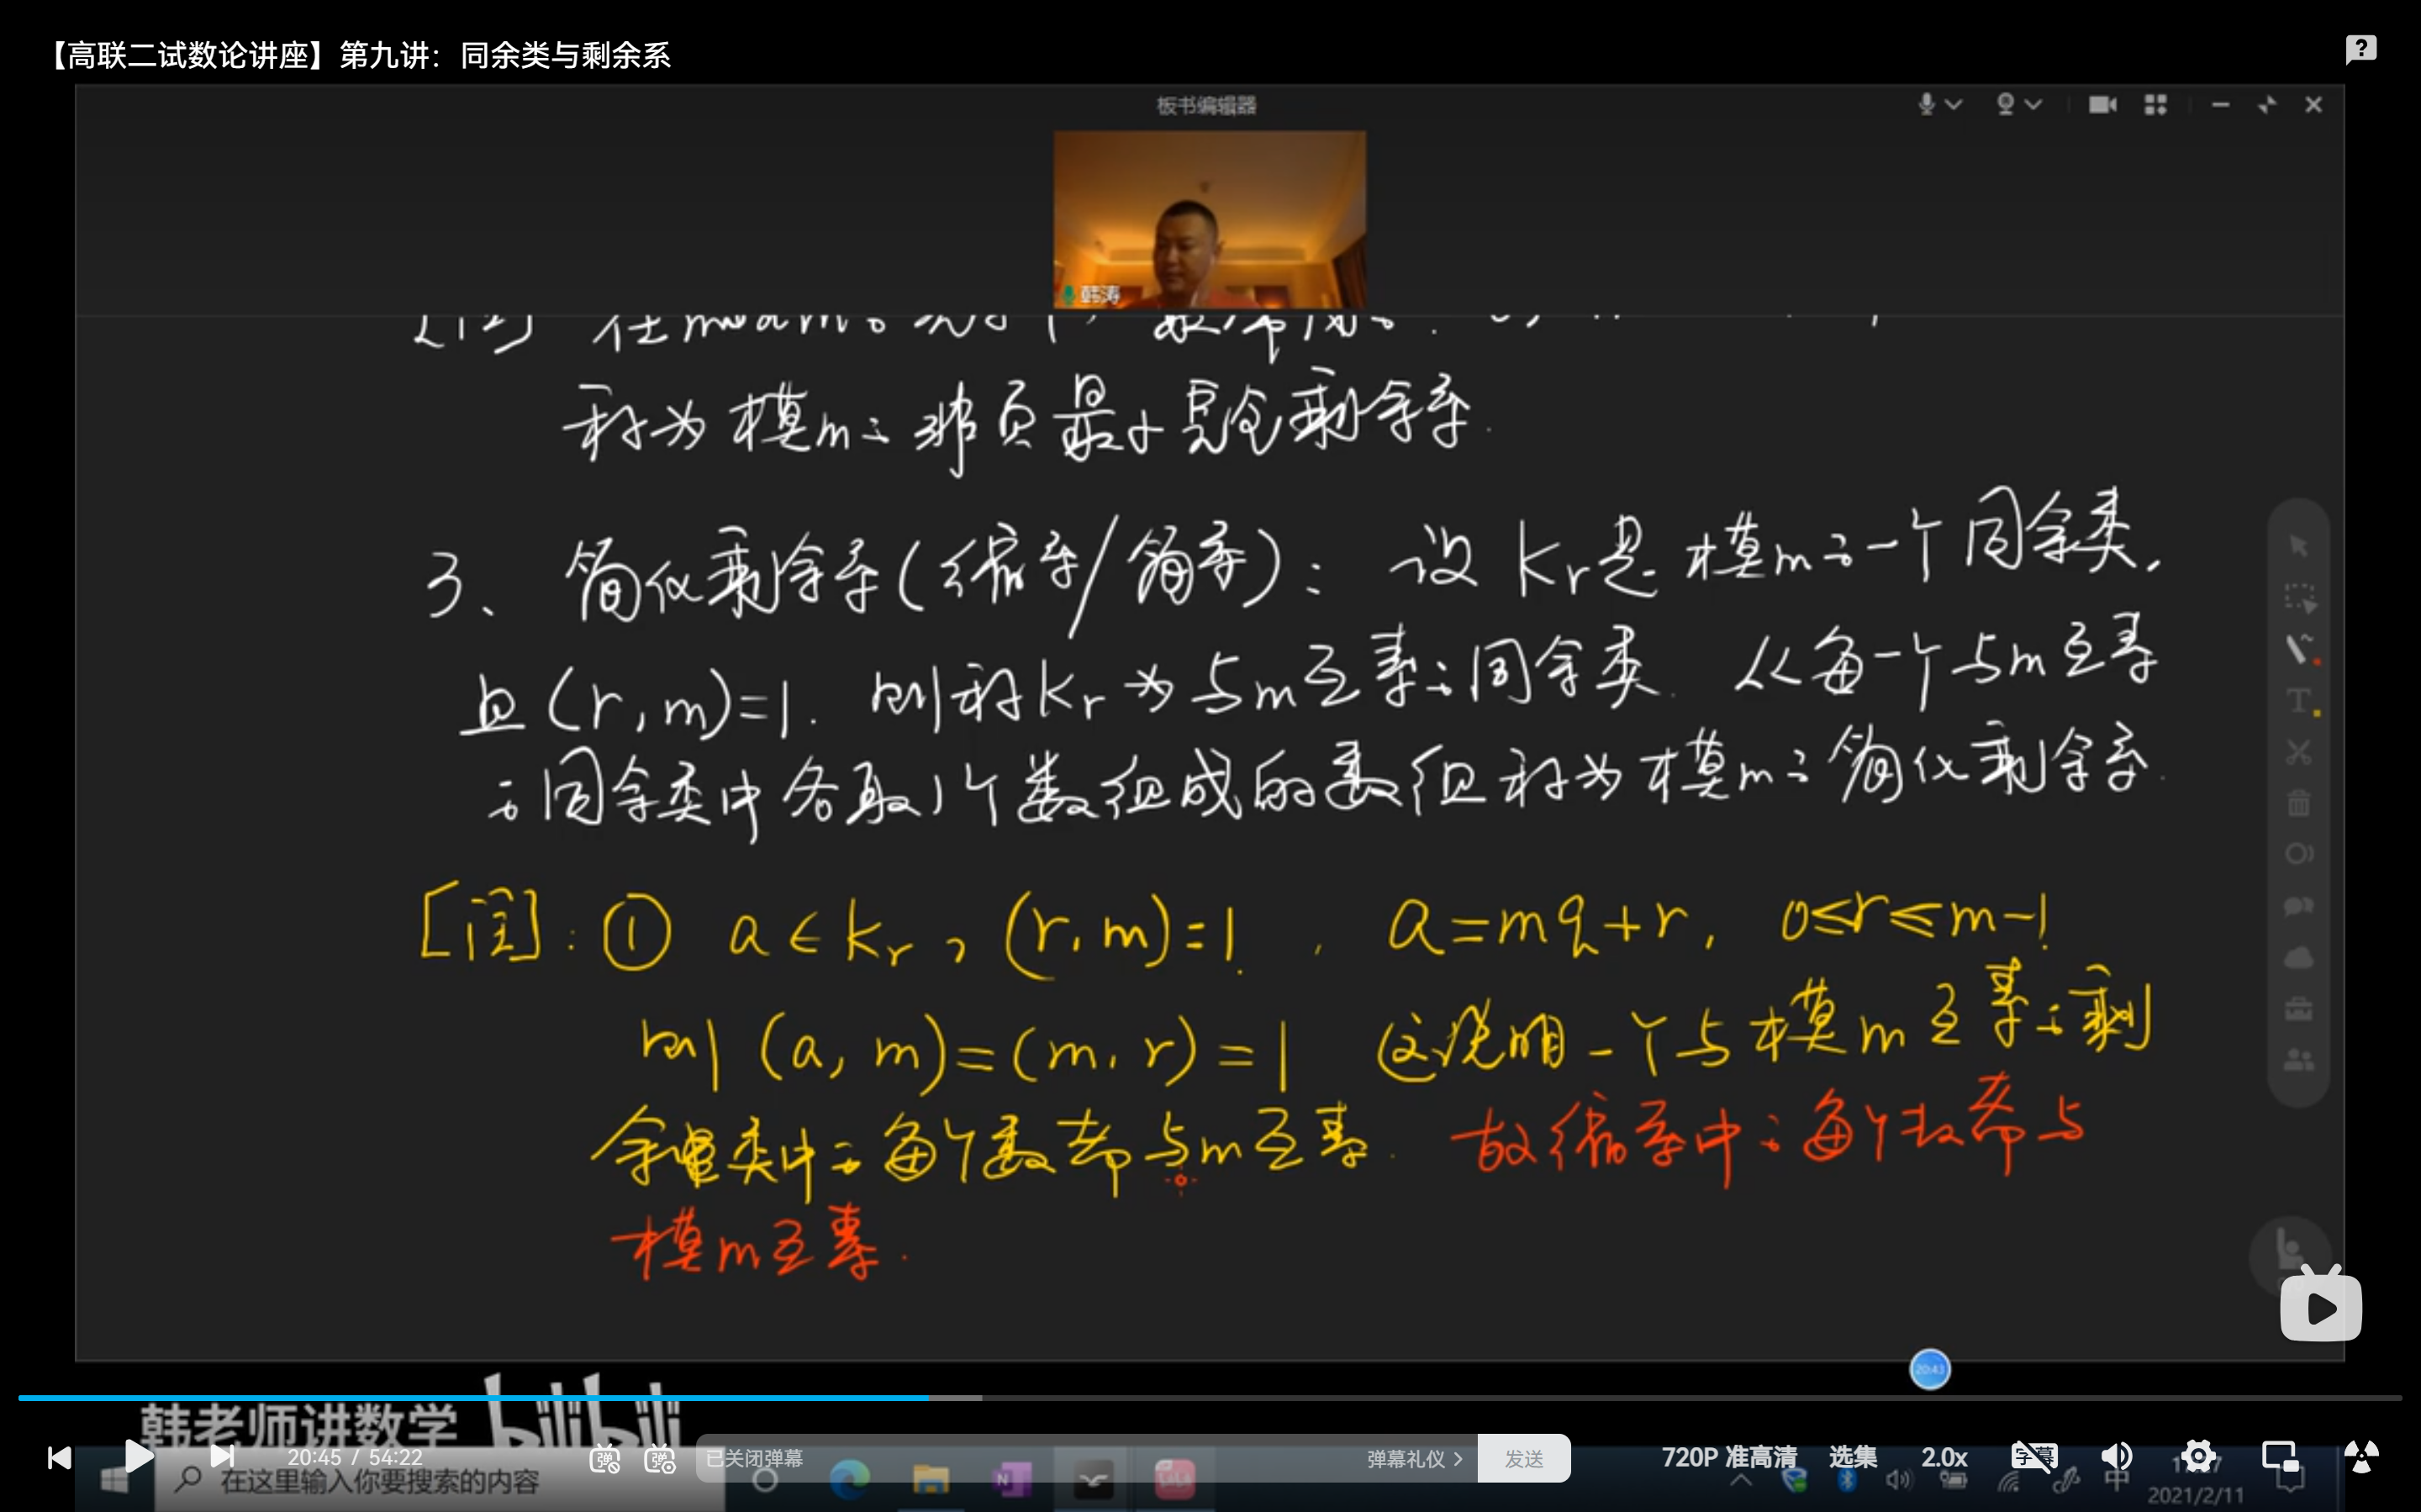 【高联二试数论讲座】第九讲：同余类与剩余系
板书编辑器
韩涛
称为模m之非负最小完全剩余系.
3、简化剩余系(缩系/简系)：设Kr是模m之一个同余类，
且(r,m)=1. 则称Kr为与m互素之同余类. 从每一个与m互素
之同余类中各取1个数组成的数组称为模m之简化剩余系.
[注]：① a∈Kr，(r,m)=1，a=mq+r，0≤r≤m-1
则(a,m)=(m,r)=1 这说明一个与模m互素之剩
余类中之每个数都与m互素. 故缩系中之每个数都与
模m互素.
20:43
韩老师讲数学 bilibili
20:45 / 54:22
已关闭弹幕
弹幕礼仪 >
发送
720P 准高清
选集
2.0x
字幕
在这里输入你要搜索的内容
中
2021/2/11